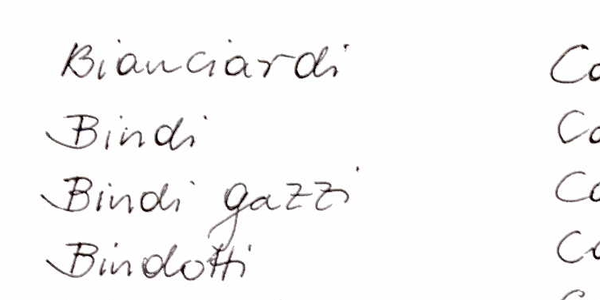 Bianciardi
Bindi
Bindi gazzi
Bindotti